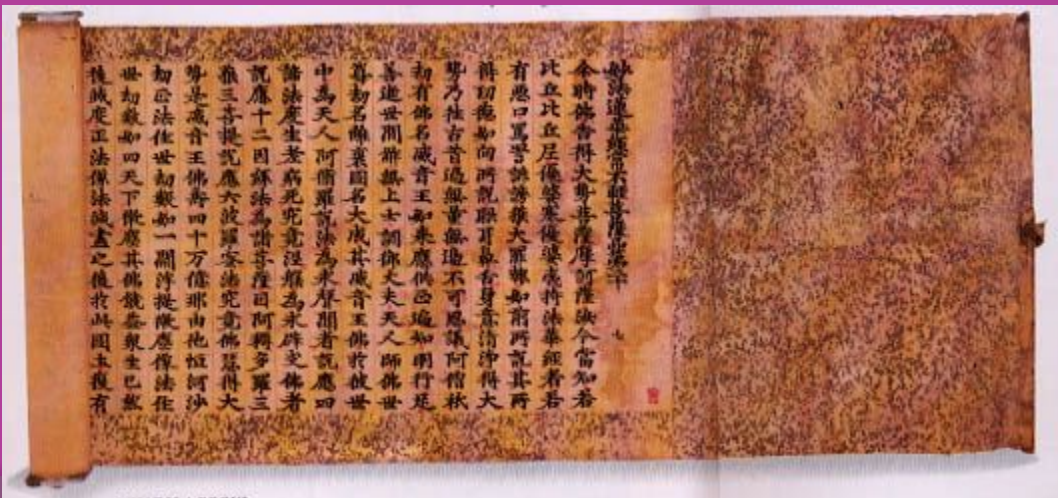 妙法蓮華經常不輕菩薩品第二十
七
尒時佛告得大勢菩薩摩訶薩汝今當知若
比丘比丘尼優婆塞優婆夷持法華經者若
有惡口罵詈誹謗獲大罪報如前所說其所
得功德如向所說眼耳鼻舌身意清淨得大
勢乃往古昔過無量無邊不可思議阿僧祇
劫有佛名威音王如來應供正遍知明行足
善逝世間解無上士調御丈夫天人師佛世
尊劫名離衰國名大成其威音王佛於彼世
中為天人阿脩羅說法為求聲聞者說應四
諦法度生老病死究竟涅槃為求辟支佛者
說應十二因緣法為諸菩薩因阿耨多羅三
藐三菩提說應六波羅蜜法究竟佛慧得大
勢是威音王佛壽四十万億那由他恒河沙
劫正法住世劫數如一閻浮提微塵像法住
世劫數如四天下微塵其佛饒益衆生已然
後滅度正法像法滅盡之後於此國土復有